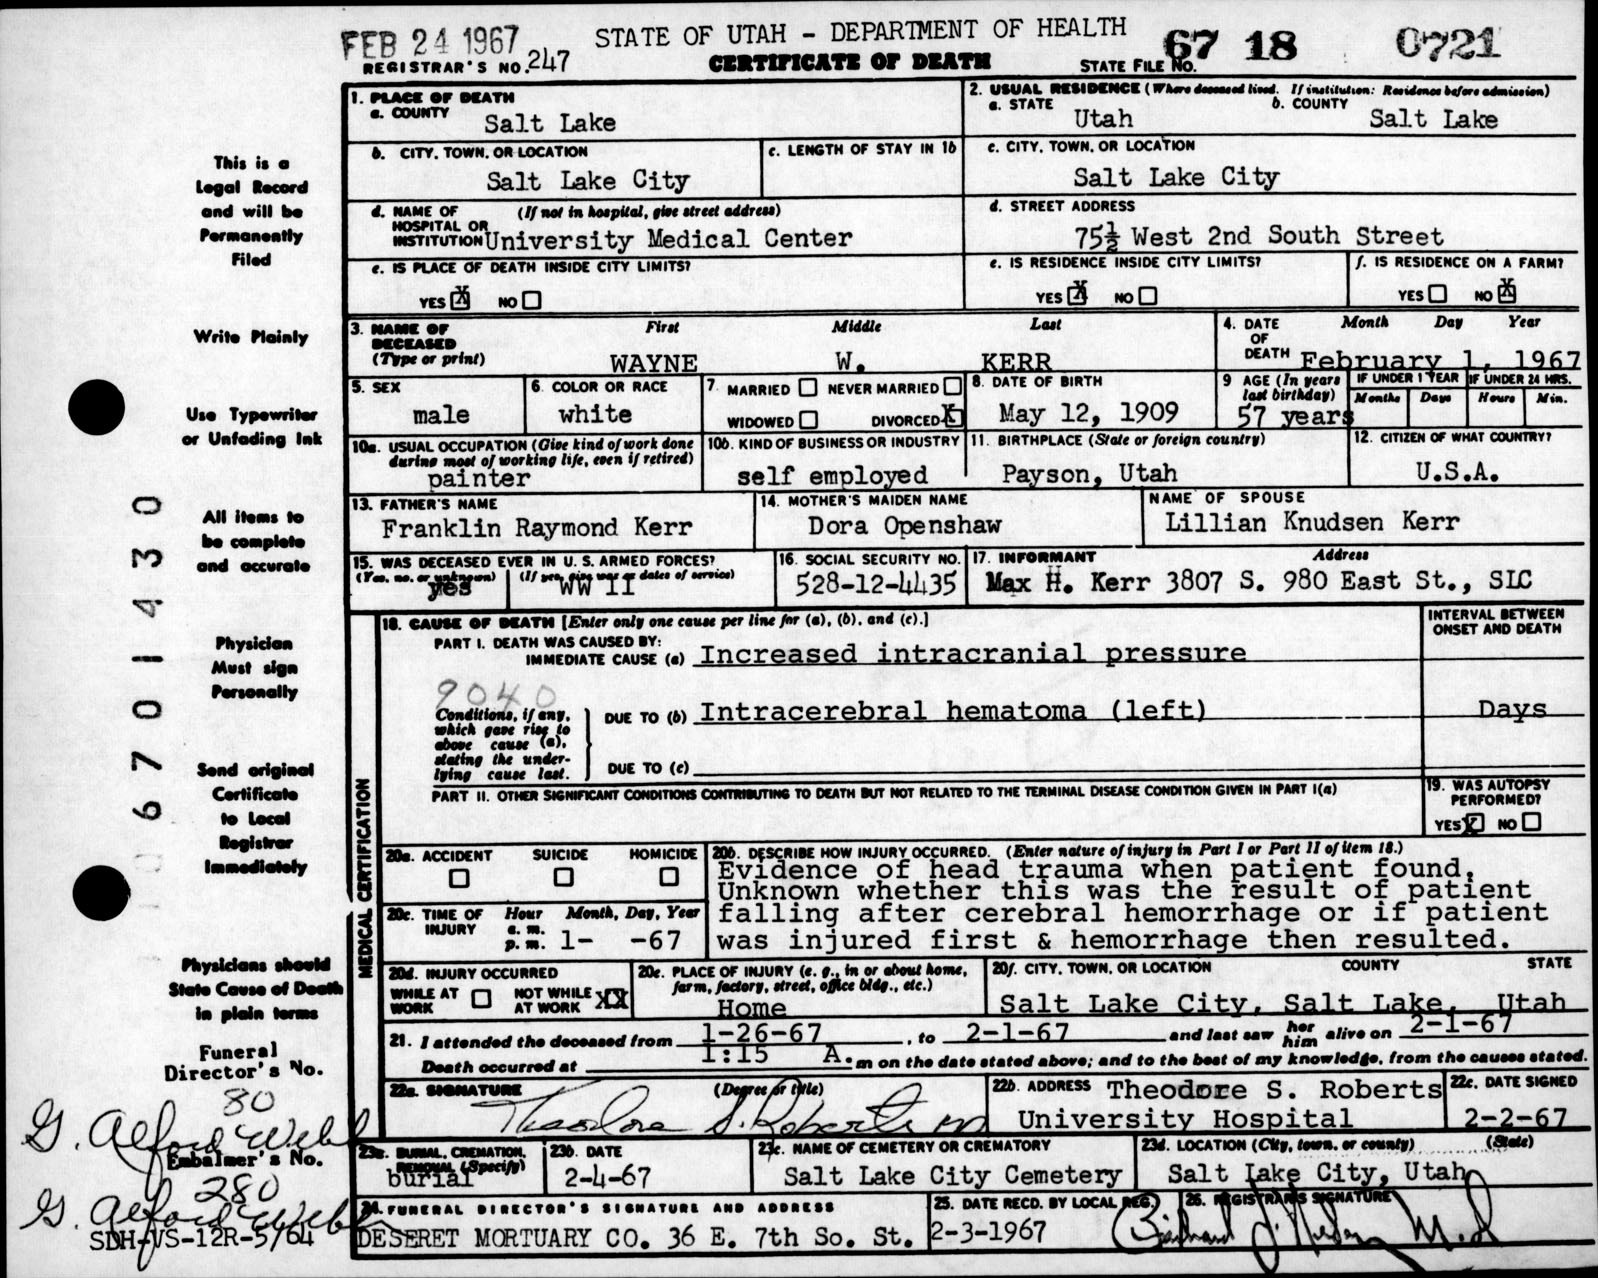 FEB 24 1967
STATE OF UTAH - DEPARTMENT OF HEALTH
67 18 0721
REGISTRAR'S NO. 247
CERTIFICATE OF DEATH
STATE FILE NO.
This is a
Legal Record
and will be
Permanently
Filed
Write Plainly
Use Typewriter
or Unfading Ink
All items to
be complete
and accurate
Physician
Must sign
Personally
Send original
Certificate
to Local
Registrar
Immediately
Physicians should
State Cause of Death
in plain terms
Funeral
Director's No.
80
G. Alford Webb
Embalmer's No.
280
G. Alford Webb
SDH-VS-12R-5/64
06701430
1. PLACE OF DEATH
a. COUNTY
Salt Lake
2. USUAL RESIDENCE (Where deceased lived. If institution: Residence before admission)
a. STATE
Utah
b. COUNTY
Salt Lake
b. CITY, TOWN, OR LOCATION
Salt Lake City
c. LENGTH OF STAY IN 1b
c. CITY, TOWN, OR LOCATION
Salt Lake City
d. NAME OF (If not in hospital, give street address)
HOSPITAL OR
INSTITUTION University Medical Center
d. STREET ADDRESS
75½ West 2nd South Street
e. IS PLACE OF DEATH INSIDE CITY LIMITS?
YES X NO
e. IS RESIDENCE INSIDE CITY LIMITS?
YES X NO
f. IS RESIDENCE ON A FARM?
YES NO X
3. NAME OF
DECEASED
(Type or print)
First Middle Last
WAYNE W. KERR
4. DATE
OF
DEATH
Month Day Year
February 1, 1967
5. SEX
male
6. COLOR OR RACE
white
7. MARRIED NEVER MARRIED
WIDOWED DIVORCED X
8. DATE OF BIRTH
May 12, 1909
9 AGE (In years
last birthday)
57 years
IF UNDER 1 YEAR
Months Days
IF UNDER 24 HRS.
Hours Min.
10a. USUAL OCCUPATION (Give kind of work done
during most of working life, even if retired)
painter
10b. KIND OF BUSINESS OR INDUSTRY
self employed
11. BIRTHPLACE (State or foreign country)
Payson, Utah
12. CITIZEN OF WHAT COUNTRY?
U.S.A.
13. FATHER'S NAME
Franklin Raymond Kerr
14. MOTHER'S MAIDEN NAME
Dora Openshaw
NAME OF SPOUSE
Lillian Knudsen Kerr
15. WAS DECEASED EVER IN U. S. ARMED FORCES?
(Yes, no, or unknown) (If yes, give war or dates of service)
yes WW II
16. SOCIAL SECURITY NO.
528-12-4435
17. INFORMANT Address
Max H. Kerr 3807 S. 980 East St., SLC
MEDICAL CERTIFICATION
18. CAUSE OF DEATH [Enter only one cause per line for (a), (b), and (c).]
PART I. DEATH WAS CAUSED BY:
IMMEDIATE CAUSE (a) Increased intracranial pressure
INTERVAL BETWEEN
ONSET AND DEATH
9040
Conditions, if any,
which gave rise to
above cause (a),
stating the under-
lying cause last.
DUE TO (b) Intracerebral hematoma (left)
Days
DUE TO (c)
PART II. OTHER SIGNIFICANT CONDITIONS CONTRIBUTING TO DEATH BUT NOT RELATED TO THE TERMINAL DISEASE CONDITION GIVEN IN PART I(a)
19. WAS AUTOPSY
PERFORMED?
YES X NO
20a. ACCIDENT SUICIDE HOMICIDE
20b. DESCRIBE HOW INJURY OCCURRED. (Enter nature of injury in Part I or Part II of item 18.)
Evidence of head trauma when patient found.
Unknown whether this was the result of patient
falling after cerebral hemorrhage or if patient
was injured first & hemorrhage then resulted.
20c. TIME OF
INJURY
Hour Month, Day, Year
a. m.
p. m. 1- -67
20d. INJURY OCCURRED
WHILE AT
WORK
NOT WHILE
AT WORK XX
20e. PLACE OF INJURY (e. g., in or about home,
farm, factory, street, office bldg., etc.)
Home
20f. CITY, TOWN, OR LOCATION COUNTY STATE
Salt Lake City, Salt Lake, Utah
21. I attended the deceased from 1-26-67, to 2-1-67 and last saw her him alive on 2-1-67
Death occurred at 1:15 A. m on the date stated above; and to the best of my knowledge, from the causes stated.
22a. SIGNATURE (Degree or title)
Theodore S. Roberts MD
22b. ADDRESS Theodore S. Roberts
University Hospital
22c. DATE SIGNED
2-2-67
23a. BURIAL, CREMATION,
REMOVAL (Specify)
burial
23b. DATE
2-4-67
23c. NAME OF CEMETERY OR CREMATORY
Salt Lake City Cemetery
23d. LOCATION (City, town, or county) (State)
Salt Lake City, Utah
24. FUNERAL DIRECTOR'S SIGNATURE AND ADDRESS
DESERET MORTUARY CO. 36 E. 7th So. St.
25. DATE RECD. BY LOCAL REG.
2-3-1967
26. REGISTRAR'S SIGNATURE